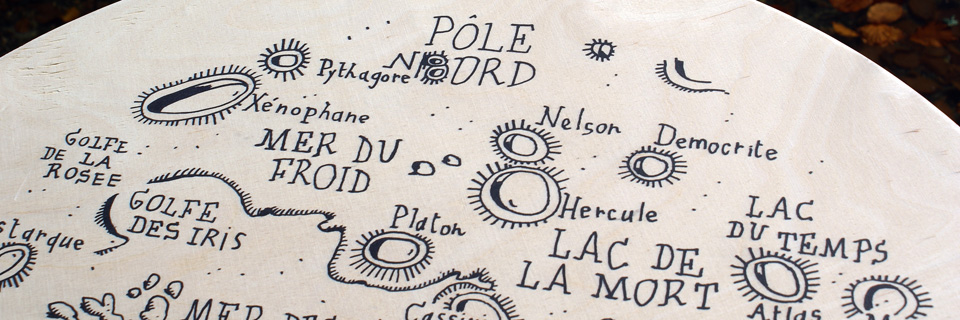 PÔLE
NORD
Pythagore
Xénophane
Nelson
Democrite
MER DU
FROID
GOLFE
DE LA
ROSEE
GOLFE
DES IRIS
Platon
Hercule
LAC
DU TEMPS
LAC DE
LA MORT
Atlas
MER